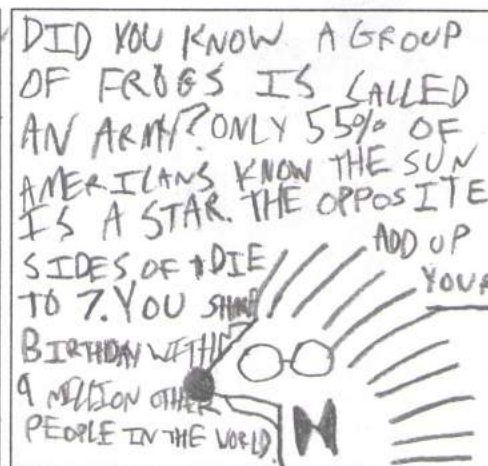 DID YOU KNOW A GROUP
OF FROGS IS CALLED
AN ARMY? ONLY 55% OF
AMERICANS KNOW THE SUN
IS A STAR. THE OPPOSITE
SIDES OF A DIE ADD UP
TO 7. YOU SHARE YOUR
BIRTHDAY WITH
9 MILLION OTHER
PEOPLE IN THE WORLD.